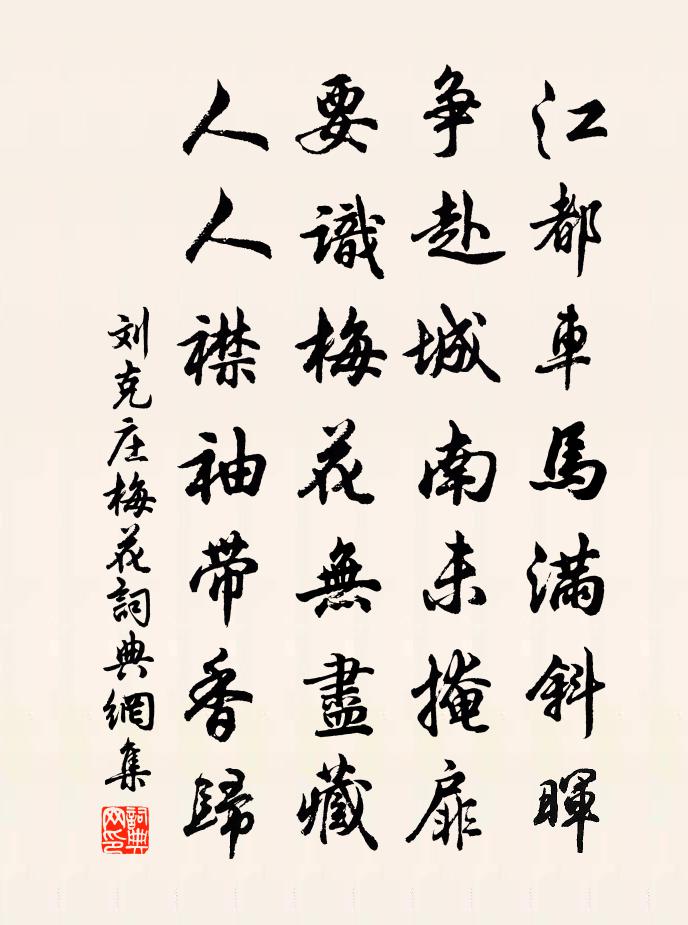 江都車馬滿斜暉
争赴城南未掩扉
要識梅花無盡藏
人人襟袖帶香歸
刘克庄梅花詞典網集
詞典网印